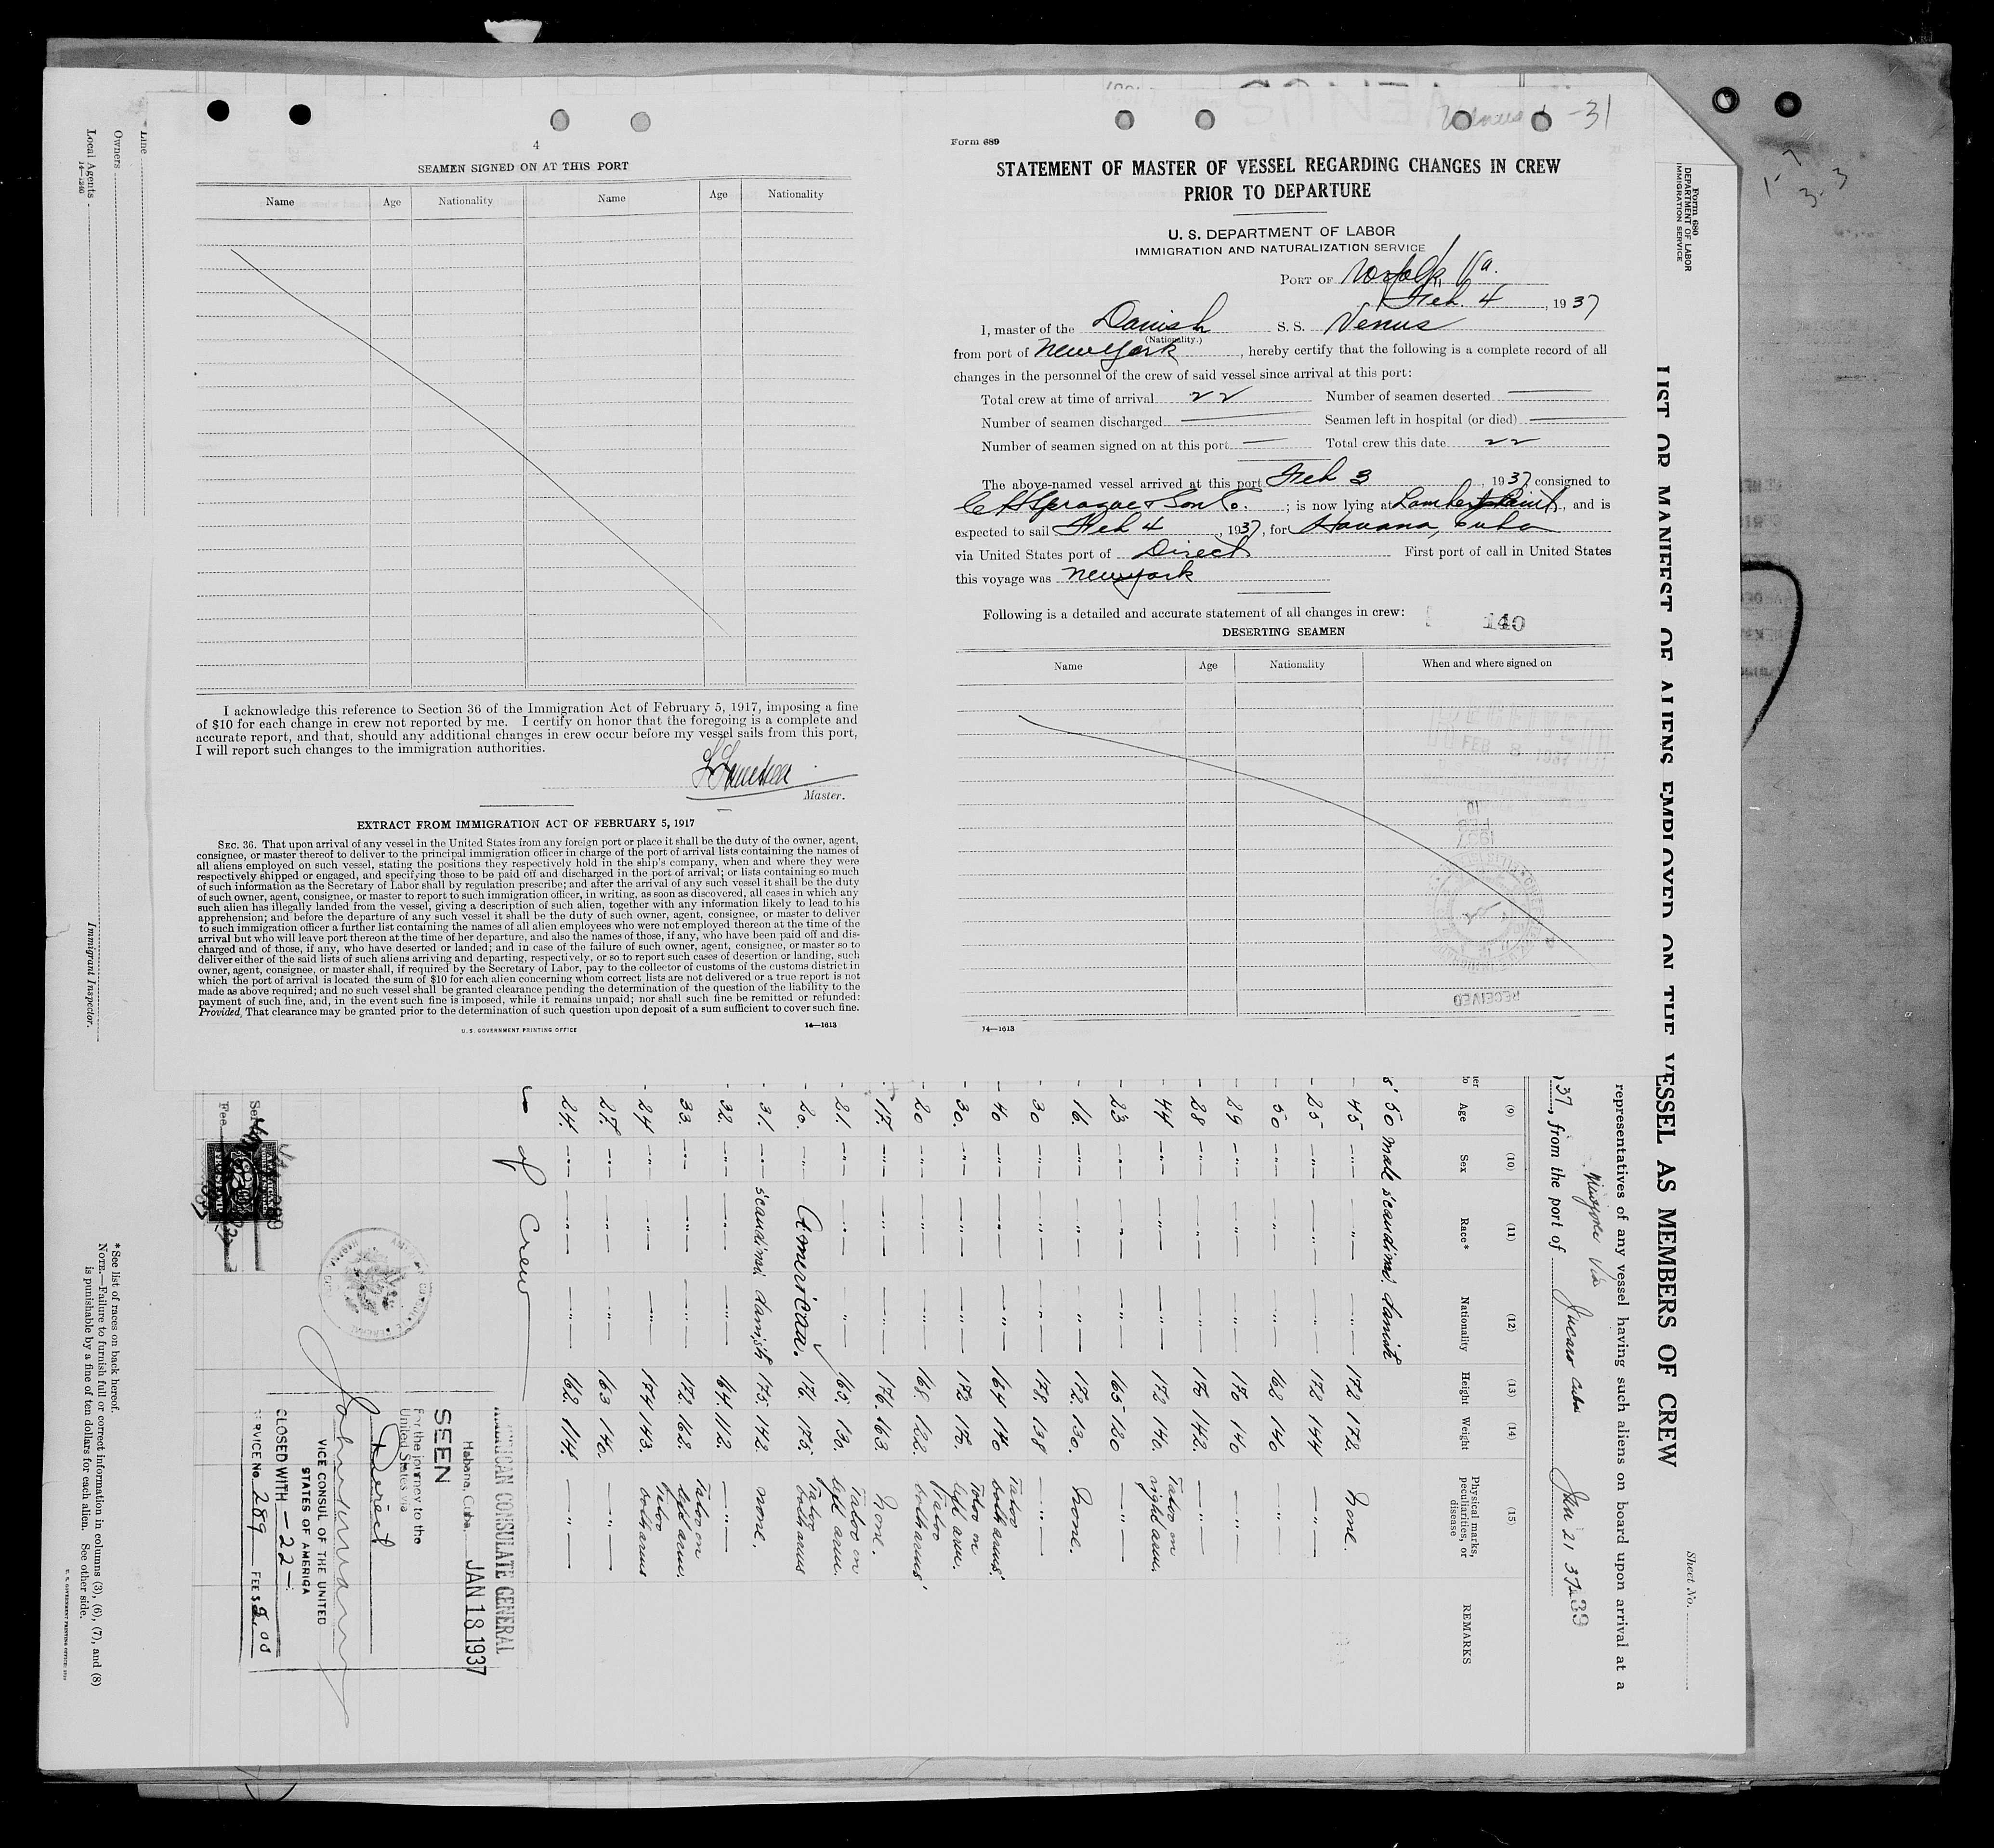 4
SEAMEN SIGNED ON AT THIS PORT
Name Age Nationality Name Age Nationality
I acknowledge this reference to Section 36 of the Immigration Act of February 5, 1917, imposing a fine
of $10 for each change in crew not reported by me. I certify on honor that the foregoing is a complete and
accurate report, and that, should any additional changes in crew occur before my vessel sails from this port,
I will report such changes to the immigration authorities.
Master.
EXTRACT FROM IMMIGRATION ACT OF FEBRUARY 5, 1917
SEC. 36. That upon arrival of any vessel in the United States from any foreign port or place it shall be the duty of the owner, agent,
consignee, or master thereof to deliver to the principal immigration officer in charge of the port of arrival lists containing the names of
all aliens employed on such vessel, stating the positions they respectively hold in the ship's company, when and where they were
respectively shipped or engaged, and specifying those to be paid off and discharged in the port of arrival; or lists containing so much
of such information as the Secretary of Labor shall by regulation prescribe; and after the arrival of any such vessel it shall be the duty
of such owner, agent, consignee, or master to report to such immigration officer, in writing, as soon as discovered, all cases in which any
such alien has illegally landed from the vessel, giving a description of such alien, together with any information likely to lead to his
apprehension; and before the departure of any such vessel it shall be the duty of such owner, agent, consignee, or master to deliver
to such immigration officer a further list containing the names of all alien employees who were not employed thereon at the time of the
arrival but who will leave port thereon at the time of her departure, and also the names of those, if any, who have been paid off and dis-
charged and of those, if any, who have deserted or landed; and in case of the failure of such owner, agent, consignee, or master so to
deliver either of the said lists of such aliens arriving and departing, respectively, or so to report such cases of desertion or landing, such
owner, agent, consignee, or master shall, if required by the Secretary of Labor, pay to the collector of customs of the customs district in
which the port of arrival is located the sum of $10 for each alien concerning whom correct lists are not delivered or a true report is not
made as above required; and no such vessel shall be granted clearance pending the determination of the question of the liability to the
payment of such fine, and, in the event such fine is imposed, while it remains unpaid; nor shall such fine be remitted or refunded:
Provided, That clearance may be granted prior to the determination of such question upon deposit of a sum sufficient to cover such fine.
U. S. GOVERNMENT PRINTING OFFICE 14—1613
-31
Form 689
STATEMENT OF MASTER OF VESSEL REGARDING CHANGES IN CREW
PRIOR TO DEPARTURE
U. S. DEPARTMENT OF LABOR
IMMIGRATION AND NATURALIZATION SERVICE
PORT OF Norfolk, Va.
Feb. 4, 1937
I, master of the Danish S. S. Venus
(Nationality.)
from port of New York, hereby certify that the following is a complete record of all
changes in the personnel of the crew of said vessel since arrival at this port:
Total crew at time of arrival 22 Number of seamen deserted —
Number of seamen discharged — Seamen left in hospital (or died) —
Number of seamen signed on at this port — Total crew this date 22
The above-named vessel arrived at this port Feb 3, 1937, consigned to
C H Sprague & Son Co.; is now lying at Lamberts Point, and is
expected to sail Feb 4, 1937, for Havana, Cuba
via United States port of Direct First port of call in United States
this voyage was New York
Following is a detailed and accurate statement of all changes in crew:
140
DESERTING SEAMEN
Name Age Nationality When and where signed on
FEB 8 1937
RECEIVED
14—1613
1-7
3-3
Form 680
DEPARTMENT OF LABOR
IMMIGRATION SERVICE
Sheet No.
LIST OR MANIFEST OF ALIENS EMPLOYED ON THE VESSEL AS MEMBERS OF CREW
representatives of any vessel having such aliens on board upon arrival at a
37, from the port of Jucaro Cuba Jan 21 37
39
(9) (10) (11) (12) (13) (14) (15)
Age Sex Race* Nationality Height Weight Physical marks, peculiarities, or disease REMARKS
50 male scandina. danish
45 —"— —"— —"— 172 172. None.
25 —"— —"— —"— 172 144 —"—
50 —"— —"— —"— 162 140 —"—
29 —"— —"— —"— 170 140 —"—
28 —"— —"— —"— 170 142. —"—
44 —"— —"— —"— 172 140. Tatoo on right arm.
23 —"— —"— —"— 165 120 —"—
16. —"— —"— —"— 172. 130. None.
30 —"— —"— —"— 178. 138 —"—
40 —"— —"— —"— 164 170 Tatoo both arms.
30. —"— —"— —"— 172 170. Tatoo on left arm.
20 —"— —"— —"— 168. 122. Tatoo both arms
17. —"— —"— —"— 176. 163. None.
21. —"— —"— —"— 165. 130. Tatoo on left arm.
20. —"— American. 176. 175. Tatoo both arms
31. —"— scandina. danish 175. 142. none.
32. —"— —"— —"— 164. 112. —"—
33. —"— —"— —"— 172. 162. Tatoo on left arm.
24 —"— —"— —"— 174 143. Tatoo both arms
27. —"— —"— —"— 163 146. —"—
24. —"— —"— —"— 162. 114. —"—
of Crew
AMERICAN CONSULATE GENERAL
Habana, Cuba JAN 18 1937
SEEN
For the journey to the
United States via
Direct
VICE CONSUL OF THE UNITED
STATES OF AMERICA
CLOSED WITH — 22 —
SERVICE No. 289 FEE $
Fee
* See list of races on back hereof.
NOTE.—Failure to furnish full or correct information in columns (3), (6), (7), and (8)
is punishable by a fine of ten dollars for each alien. See other side.
Line
Owners
Local Agents
14—1240
Immigrant Inspector.